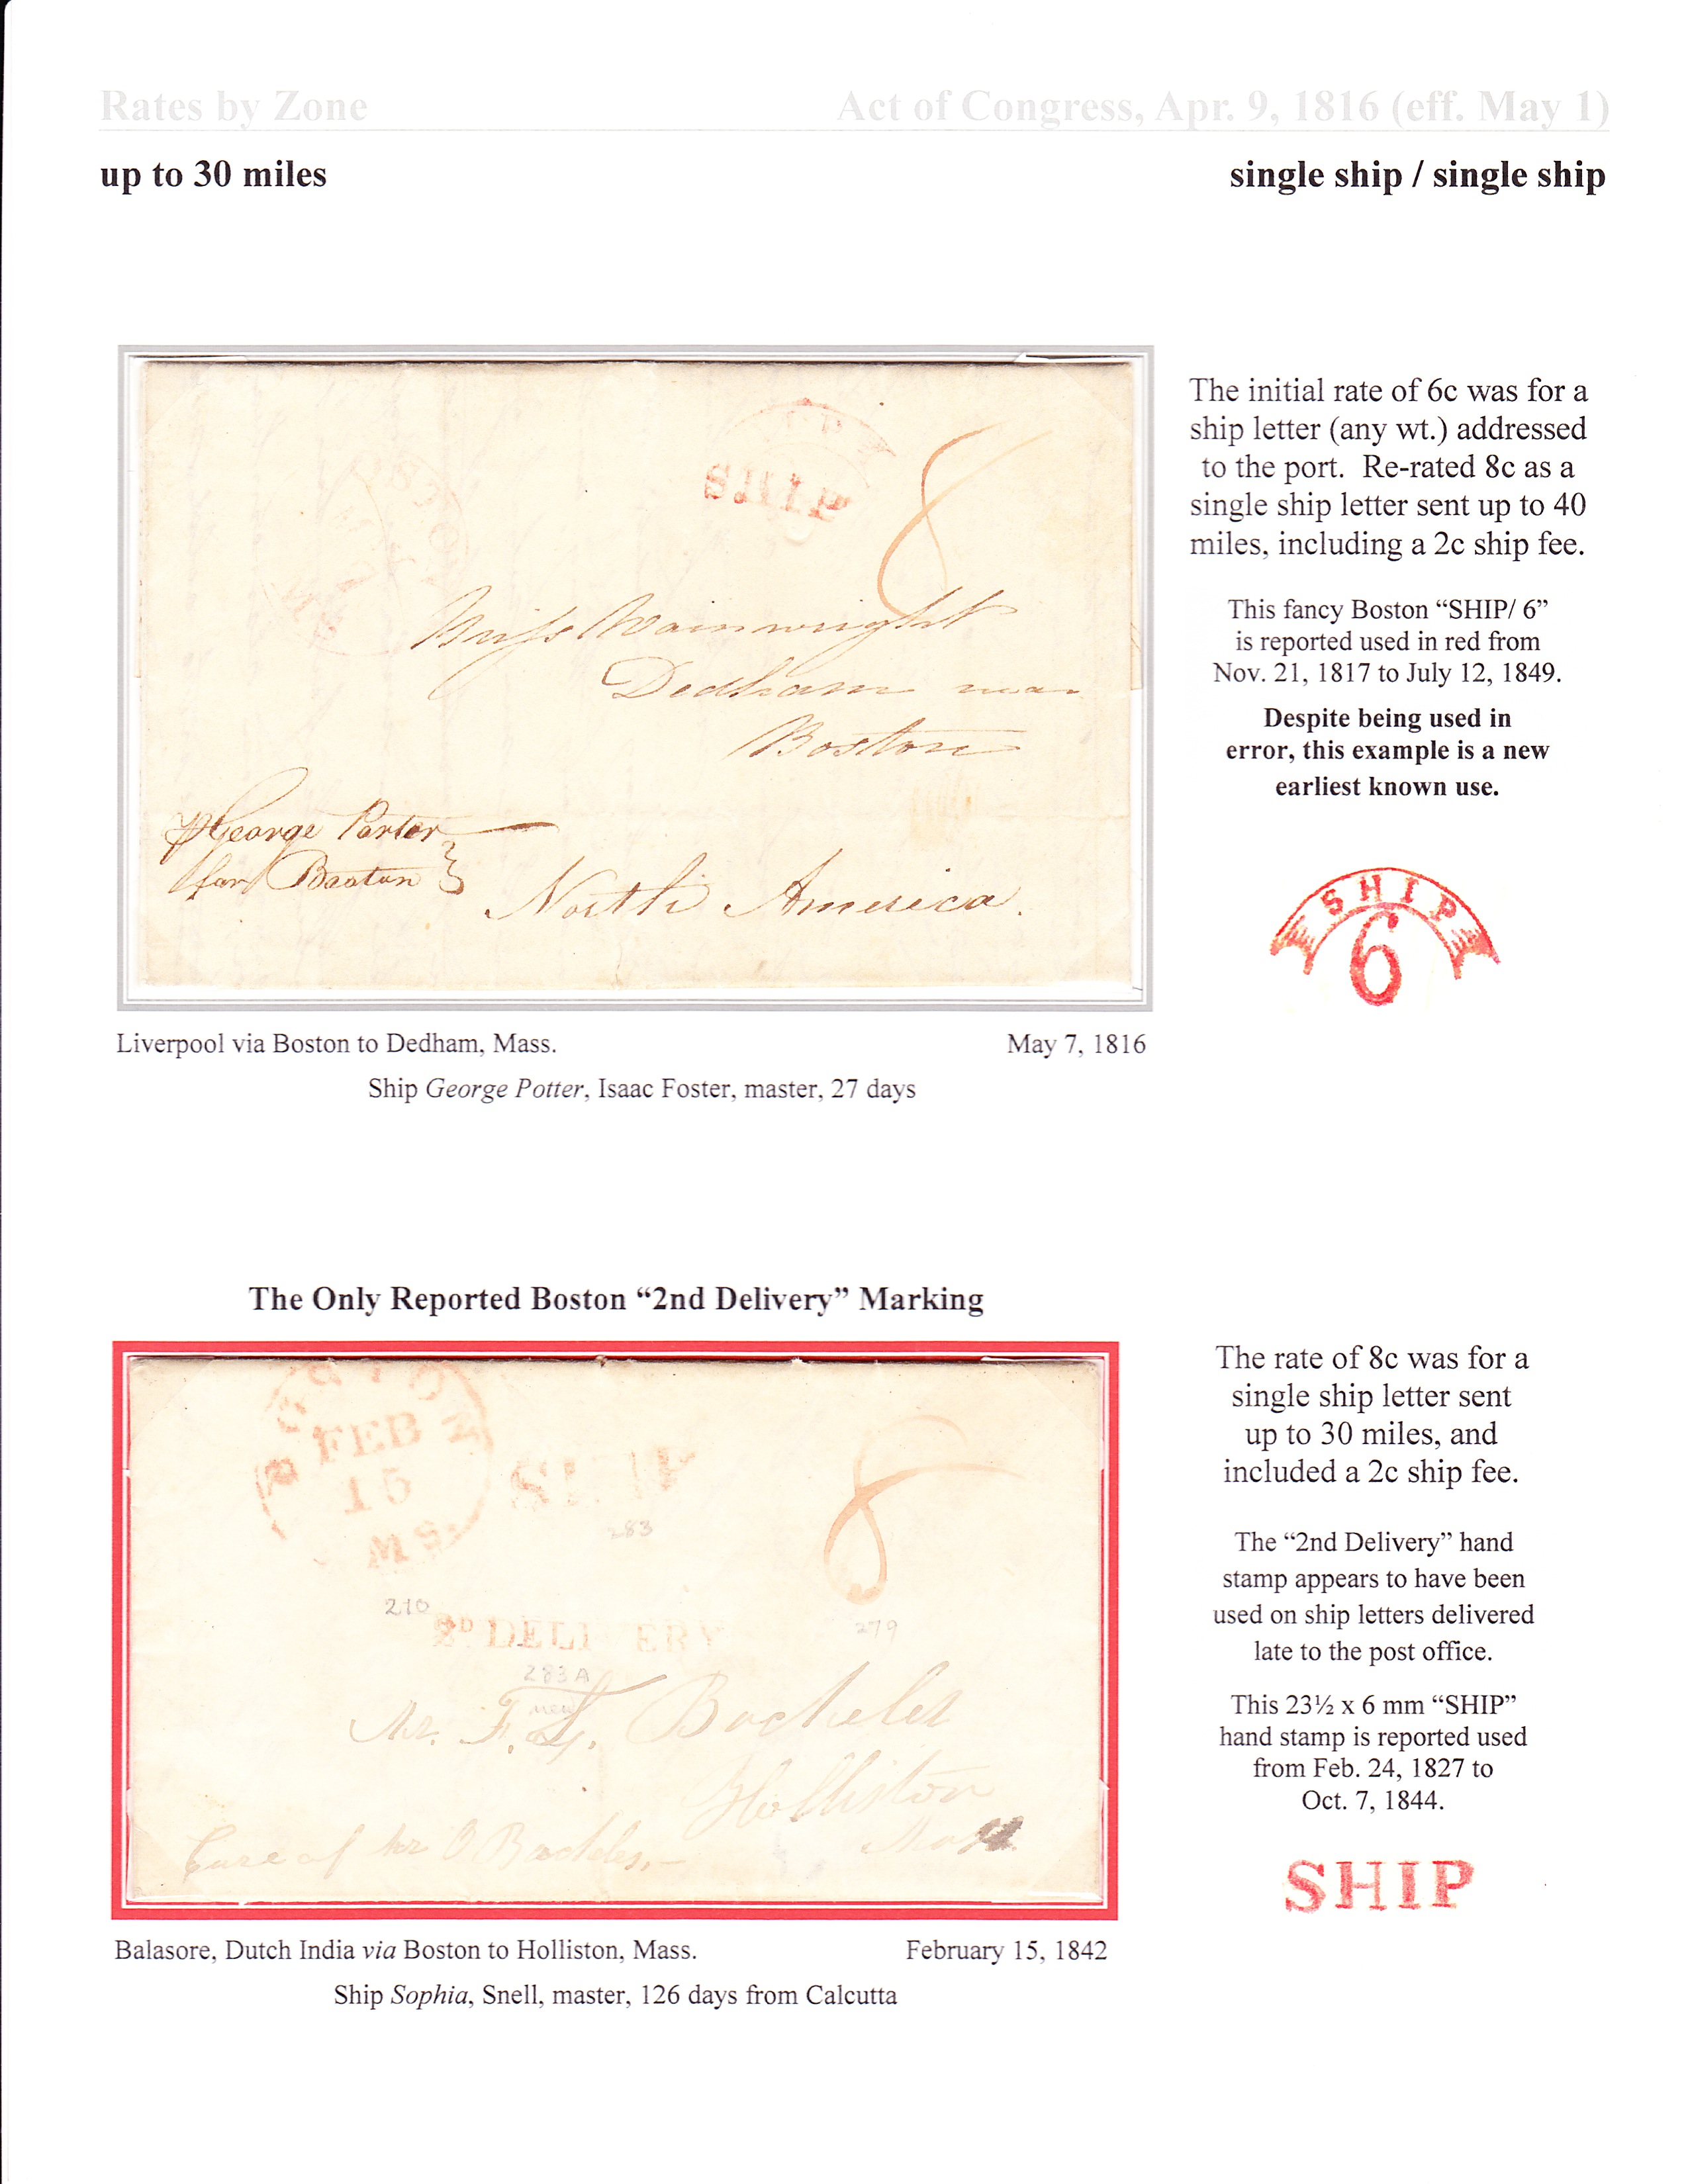 Rates by Zone
Act of Congress, Apr. 9, 1816 (eff. May 1)
up to 30 miles
single ship / single ship
SHIP
8
Miss Wainwright
Dedham near
Boston
George Porter
for Boston
North America.
The initial rate of 6c was for a
ship letter (any wt.) addressed
to the port. Re-rated 8c as a
single ship letter sent up to 40
miles, including a 2c ship fee.
This fancy Boston “SHIP/ 6”
is reported used in red from
Nov. 21, 1817 to July 12, 1849.
Despite being used in
error, this example is a new
earliest known use.
SHIP
6
Liverpool via Boston to Dedham, Mass.
May 7, 1816
Ship George Potter, Isaac Foster, master, 27 days
The Only Reported Boston “2nd Delivery” Marking
BOSTON
FEB
15
MS.
SHIP
283
8
210
2D DELIVERY
279
283A
new
Mr. F. L. Bachelet
Holliston
Mass
Care of Mr O Bachler,
The rate of 8c was for a
single ship letter sent
up to 30 miles, and
included a 2c ship fee.
The “2nd Delivery” hand
stamp appears to have been
used on ship letters delivered
late to the post office.
This 23½ x 6 mm “SHIP”
hand stamp is reported used
from Feb. 24, 1827 to
Oct. 7, 1844.
SHIP
Balasore, Dutch India via Boston to Holliston, Mass.
February 15, 1842
Ship Sophia, Snell, master, 126 days from Calcutta